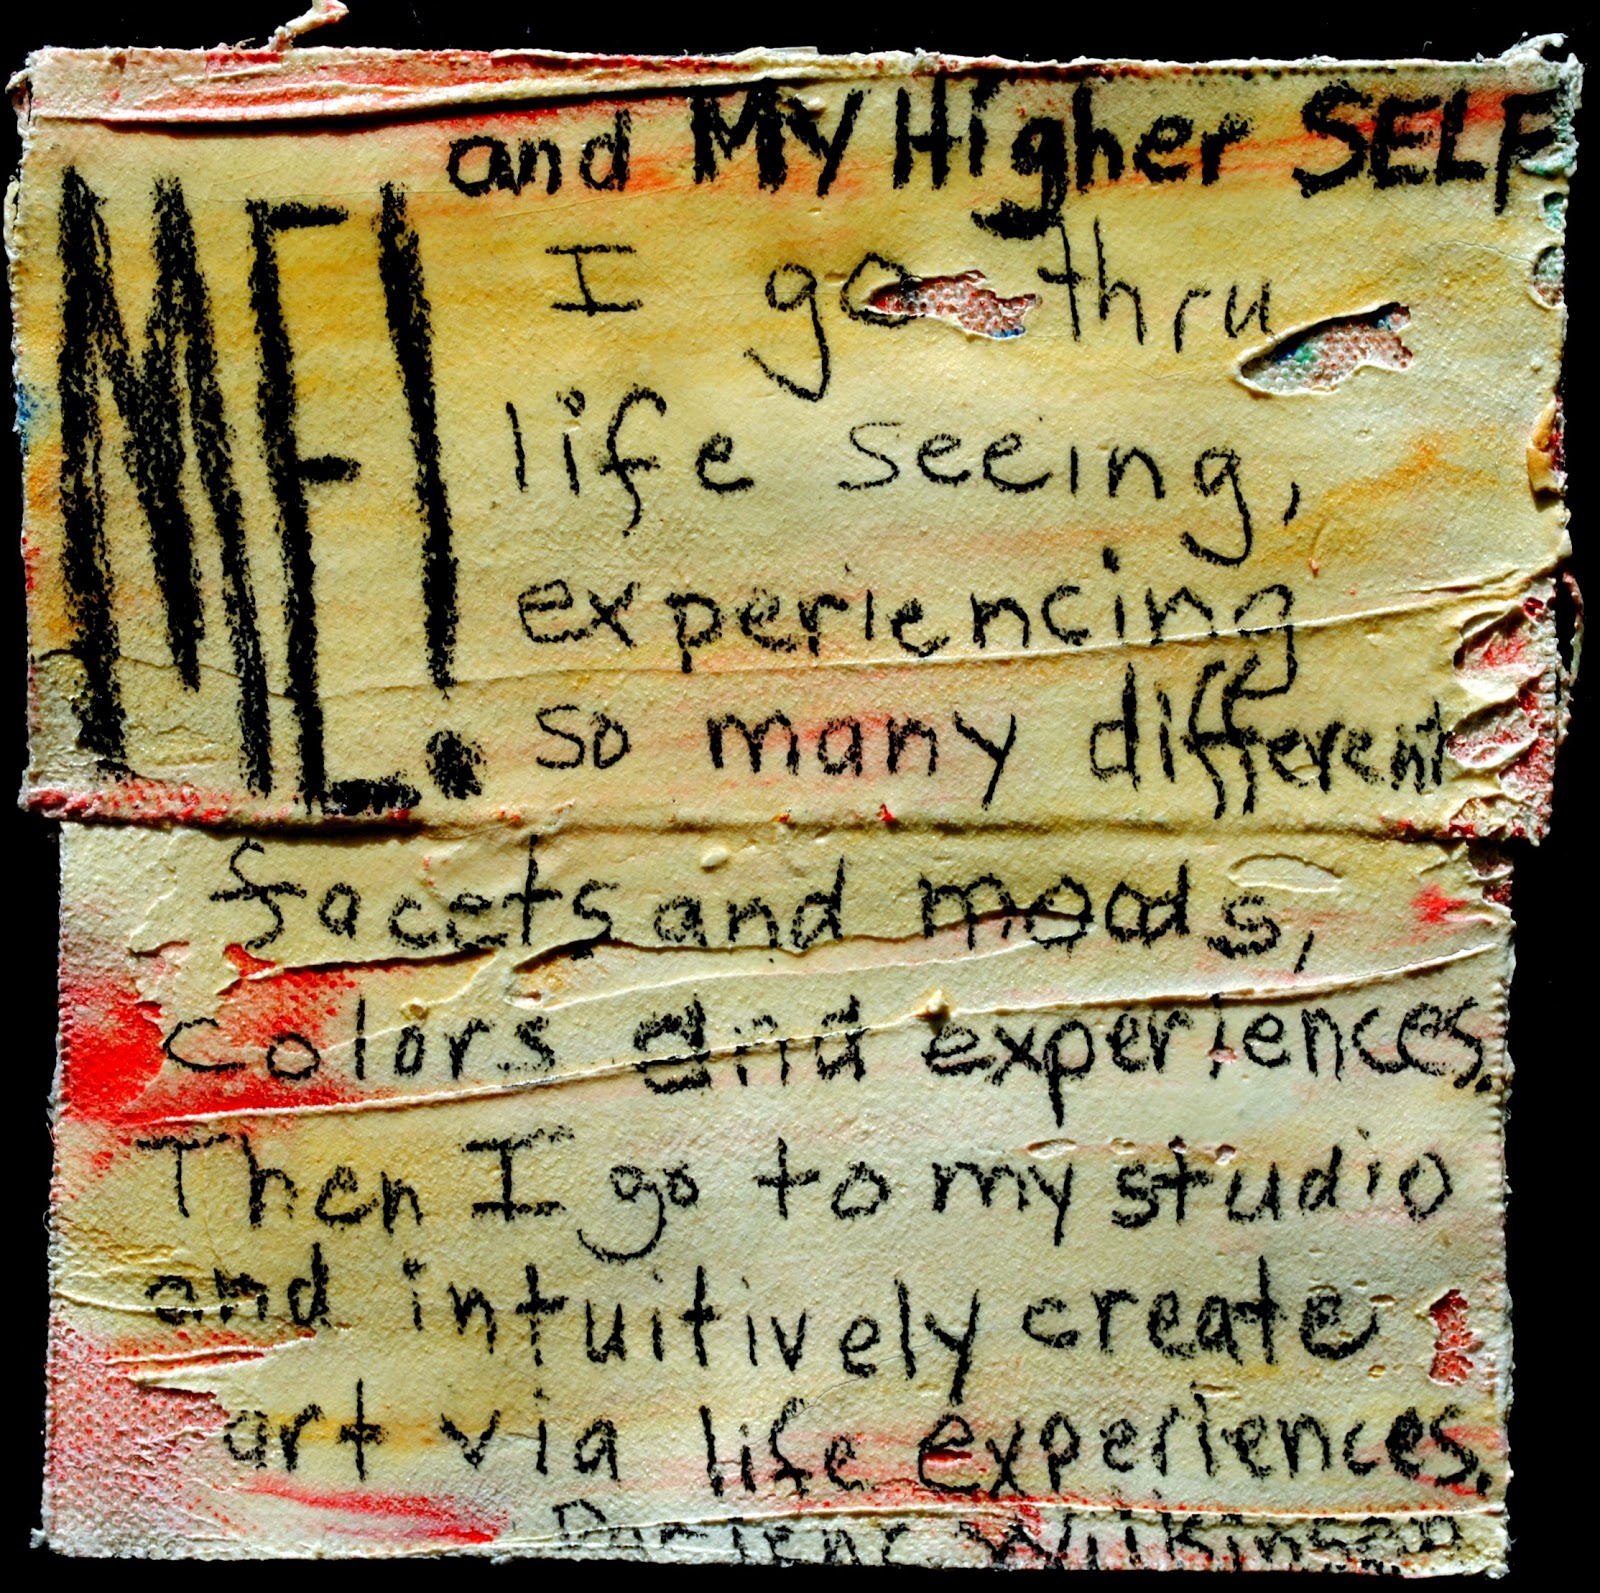 ME!
and My Higher SELF
I go thru
life seeing,
experiencing
so many different
facets and moods,
Colors and experiences.
Then I go to my studio
and intuitively create
art via life experiences.
Wilkinson